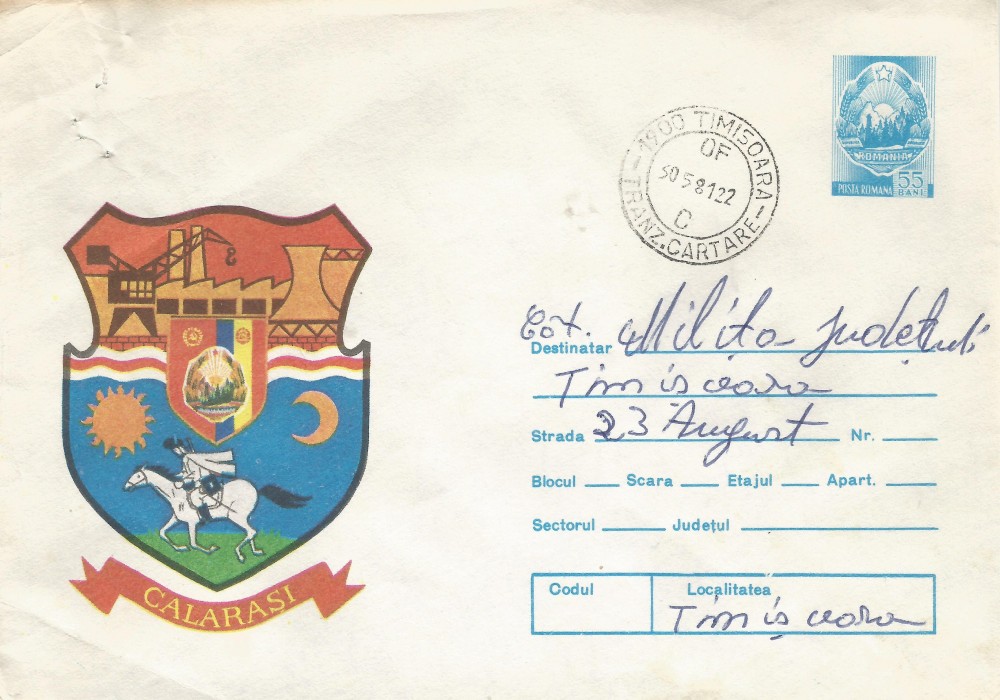 ROMANIA
POSTA ROMANA 55 BANI
1900 TIMISOARA
OF
30 5 81 22
C
TRANZ. CARTARE
CALARASI
Destinatar Miliția Județului
Timișoara
Strada 23 August Nr.
Blocul Scara Etajul Apart.
Sectorul Județul
Codul Localitatea
Timișoara